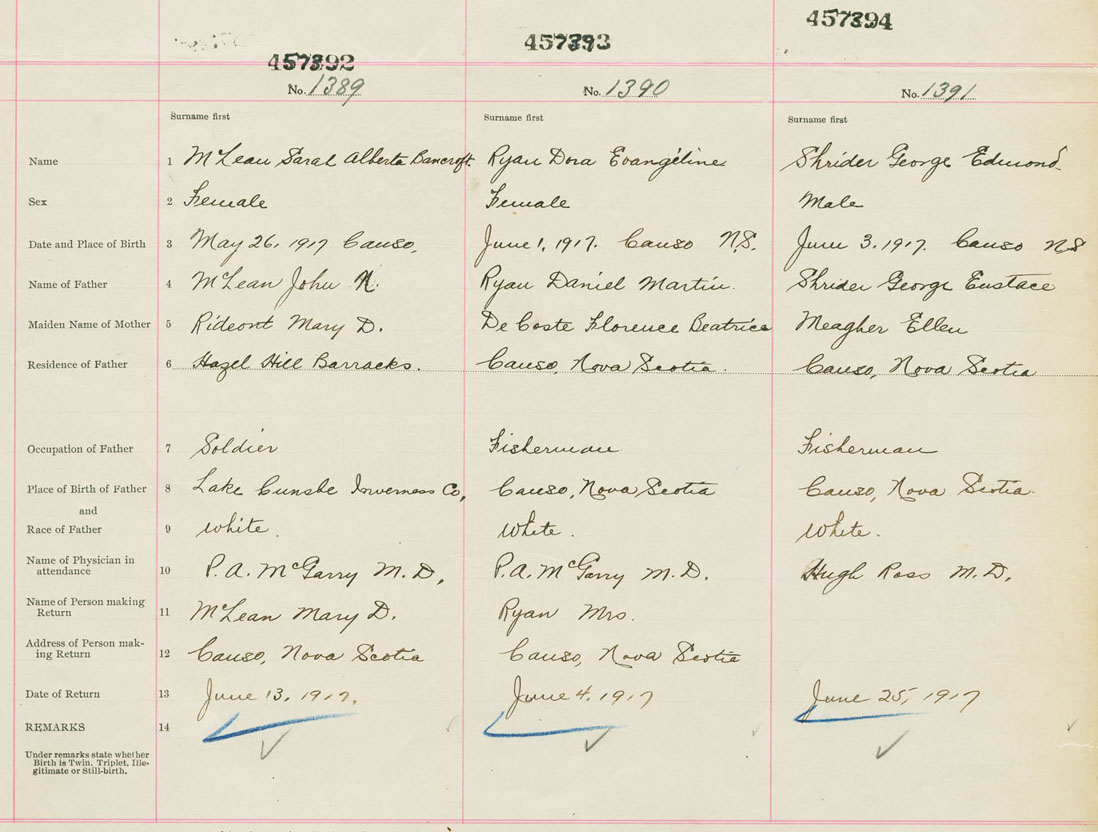 457392 457393 457394
No. 1389 No. 1390 No. 1391
Surname first Surname first Surname first
Name 1 McLean Saral Alberta Bancroft. Ryan Dora Evangeline Shrider George Edmond
Sex 2 Female Female Male
Date and Place of Birth 3 May 26, 1917 Canso, June 1, 1917. Canso N.S. June 3. 1917. Canso NS
Name of Father 4 McLean John N. Ryan Daniel Martin. Shrider George Eustace
Maiden Name of Mother 5 Rideont Mary D. De Coste Florence Beatrice Meagher Ellen
Residence of Father 6 Hazel Hill Barracks. Canso, Nova Scotia. Canso, Nova Scotia
Occupation of Father 7 Soldier Fisherman Fisherman
Place of Birth of Father 8 Lake Inverness Co, Canso, Nova Scotia Canso, Nova Scotia.
and
Race of Father 9 White. White. White.
Name of Physician in
attendance 10 P. A. McGarry M. D, P. A. McGarry M. D. Hugh Ross M. D.
Name of Person making
Return 11 McLean Mary D. Ryan Mrs.
Address of Person mak-
ing Return 12 Canso, Nova Scotia Canso, Nova Scotia
Date of Return 13 June 13, 1917. June 4. 1917 June 25, 1917
REMARKS 14
Under remarks state whether
Birth is Twin, Triplet, Ille-
gitimate or Still-birth.